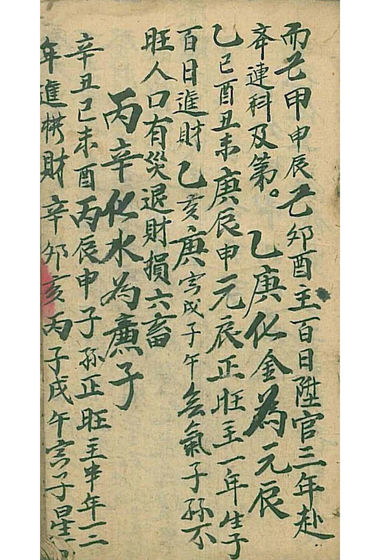 而己甲申辰己卯酉主百日陞官三年赴
奉連科及第。乙庚化金為元辰
乙巳酉丑未庚辰申元辰正旺主一年生子
百日進財乙亥庚寅戌子午無氣子孫不
旺人口有災退財損六畜
丙辛化水為廉子
辛丑巳未酉丙辰申子孫正旺主半年一二
年進横財辛卯亥丙子戌午寅子星